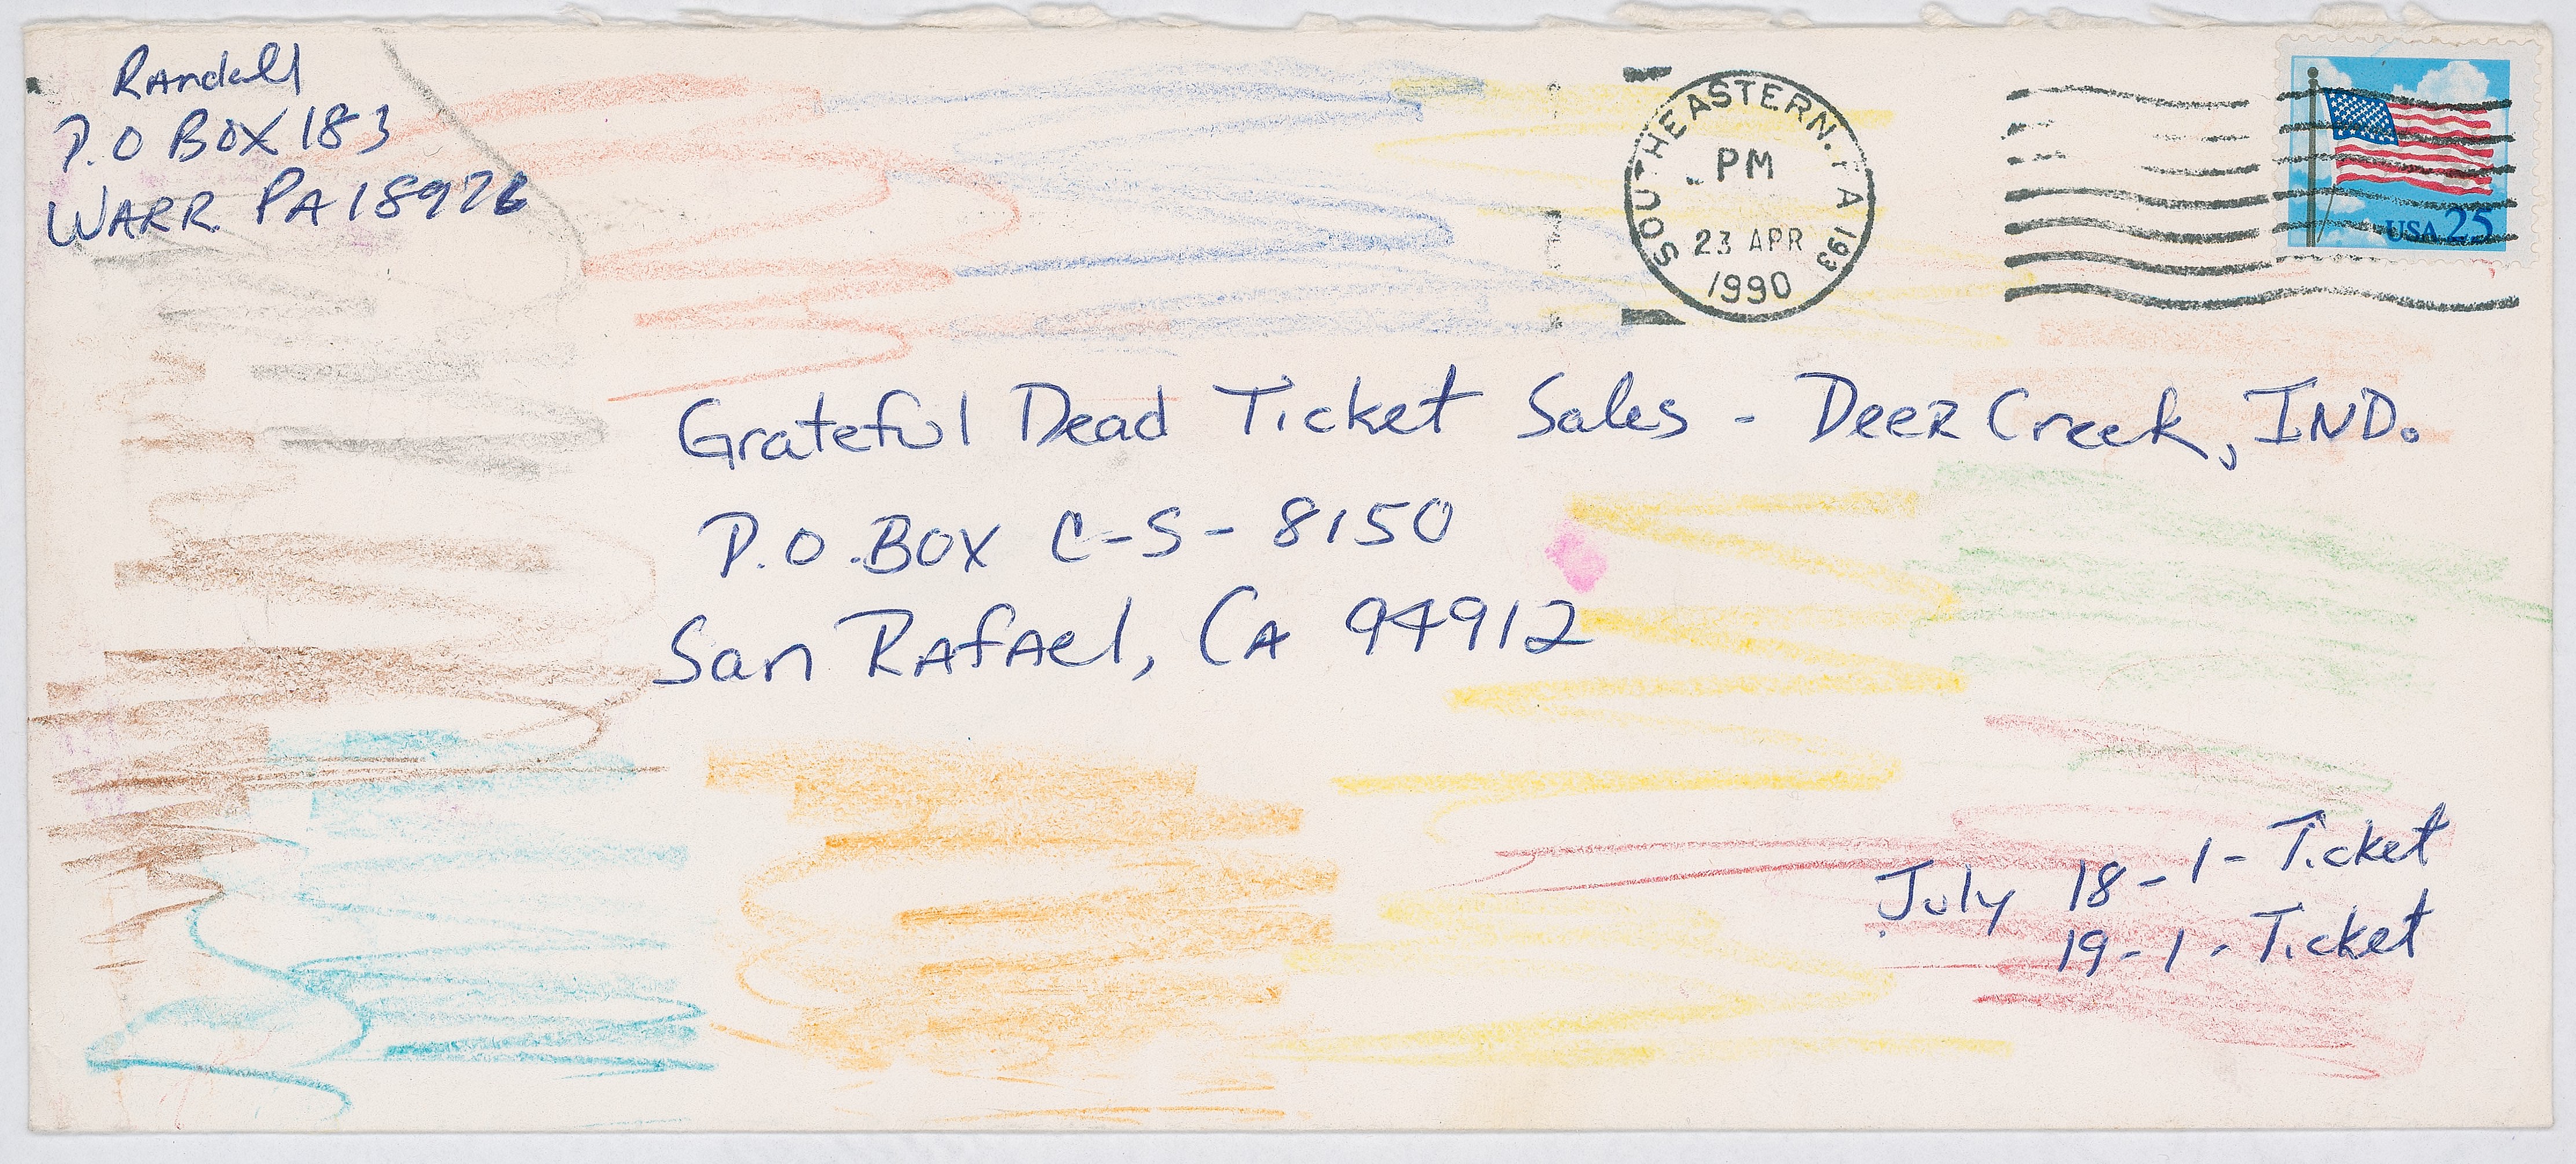 Randall
P.O BOX 183
WARR PA 18976
SOUTHEASTERN. PA 193
PM
23 APR
1990
USA 25
Grateful Dead Ticket Sales - Deer Creek, IND.
P.O. BOX C-S- 8150
San Rafael, CA 94912
July 18-1- Ticket
19-1- Ticket